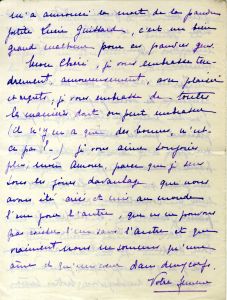 m'a annoncé la mort de la pauvre
petite Lucie Guittard, c'est un bien
grand malheur pour ces pauvres gens.
Mon Chéri, je vous embrasse ten-
drement, amoureusement, avec plaisir
et regrets, je vous embrasse de toutes
les manières dont on peut embrasser
(il n'y en a que des bonnes, n'est-
ce pas!..) je vous aime toujours
plus, mon Amour, parce que je sens
tous les jours davantage que nous
avons été mis au monde
l'un pour l'autre, que nous ne pouvons
pas l'un sans l'autre et que
vraiment nous ne sommes qu'une
âme et qu'un cœur dans deux corps.
Votre